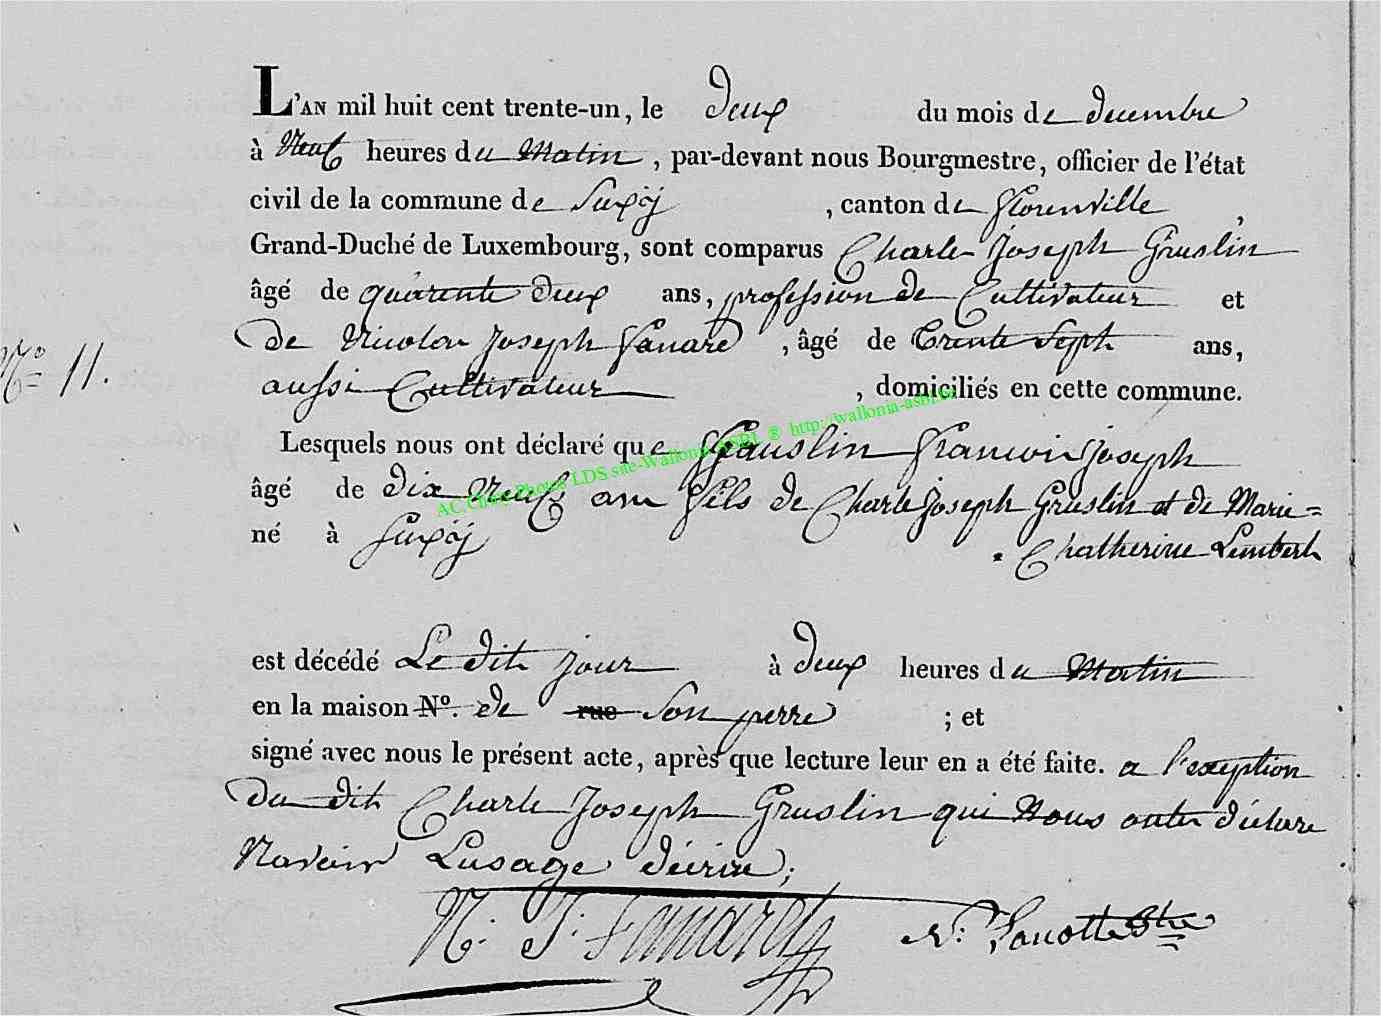 L'AN mil huit cent trente-un, le deux du mois de decembre
à Neuf heures du Matin, par-devant nous Bourgmestre, officier de l'état
civil de la commune de Suxÿ, canton de Florenville,
Grand-Duché de Luxembourg, sont comparus Charle Joseph Gruslin
âgé de quarente deux ans, profession de Cultivateur et
de Nicolas Joseph Fanard, âgé de Trente Seph ans,
N° 11.
aussi Cultivateur, domiciliés en cette commune.
Lesquels nous ont déclaré que Gruslin Francois Joseph
âgé de dix Neuf ans fils de Charle Joseph Gruslin et de Marie=
né à Suxÿ Chatherine Lambert
est décédé Le dit jour à deux heures du Matin
en la maison N°. de rue Son perre; et
signé avec nous le présent acte, après que lecture leur en a été faite. a l'exeption
du dit Charle Joseph Gruslin qui Nous déclare
Navoir Lusage décrire;
N. J. Fanard N:
AC, Choix, Photos LDS site-Wallonia ASBL ® http://wallonia-asbl.be